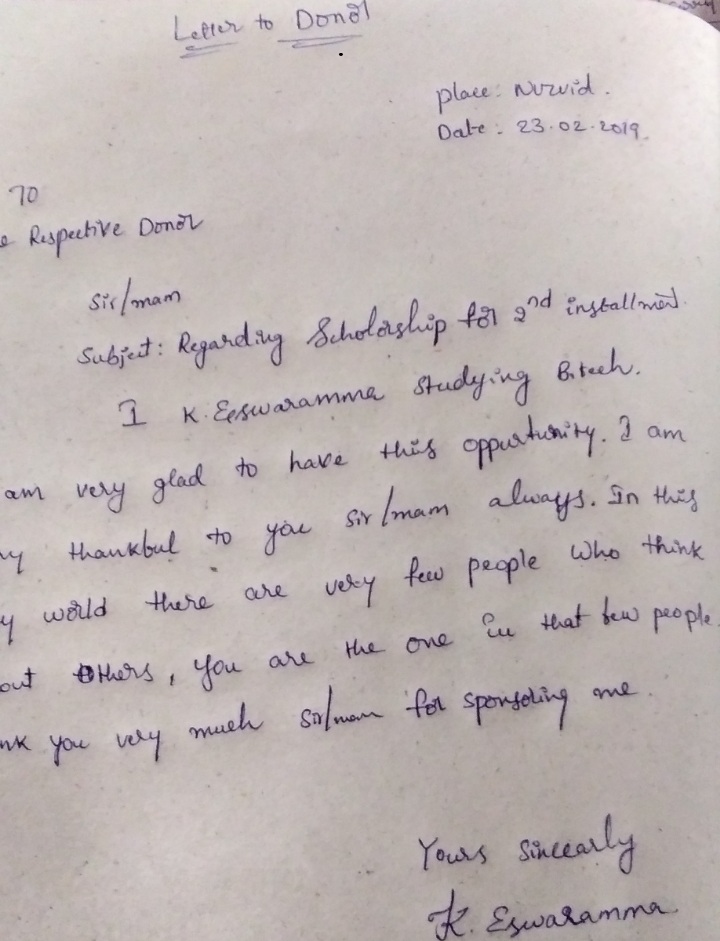 Letter to Donor
place: Nuzvid.
Date: 23.02.2019.
To
Respective Donor
Sir/mam
Subject: Regarding Scholarship for 2nd installment.
I K. Eeswaramma studying B.tech.
am very glad to have this oppurtunity. I am
thankbul to you sir/mam always. In this
world there are very few people who think
others, you are the one in that few people.
you very much sir/mam for sponsoring me.
Yours sincearly
K. Eswaramma